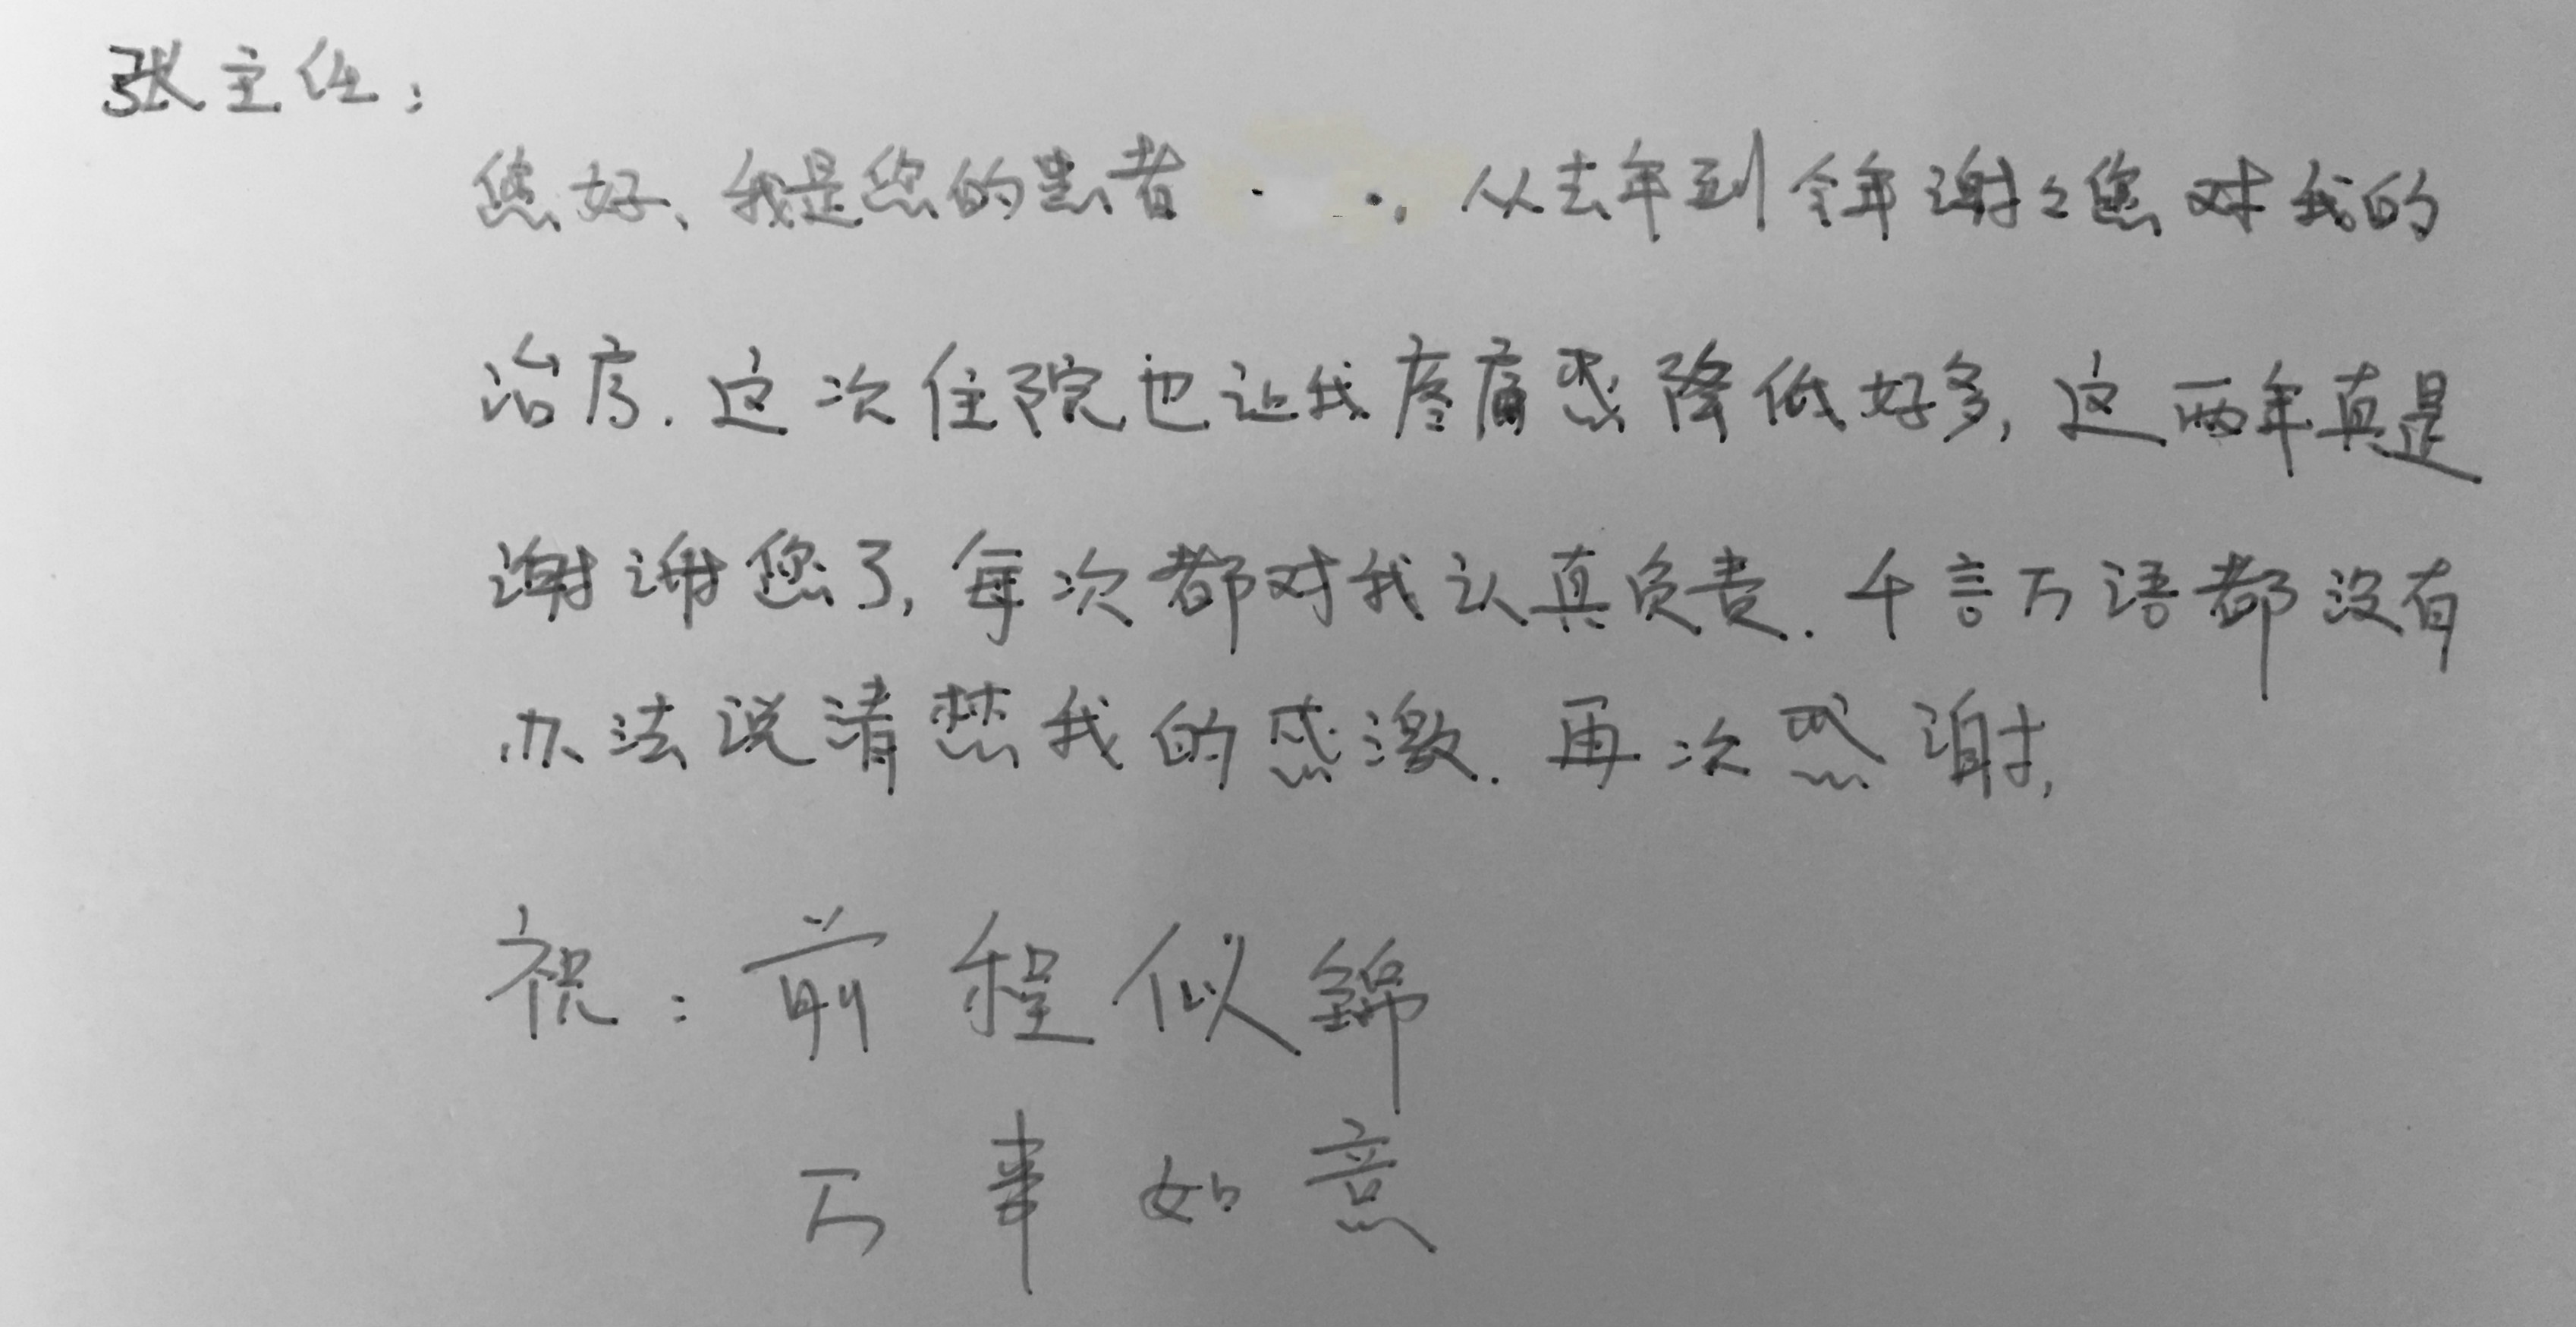 张主任：
您好、我是您的患者 ，从去年到今年谢々您对我的
治疗.这次住院也让我疼痛感降低好多,这两年真是
谢谢您了,每次都对我认真负责.千言万语都没有
办法说清楚我的感激.再次感谢,
祝：前程似锦
万事如意